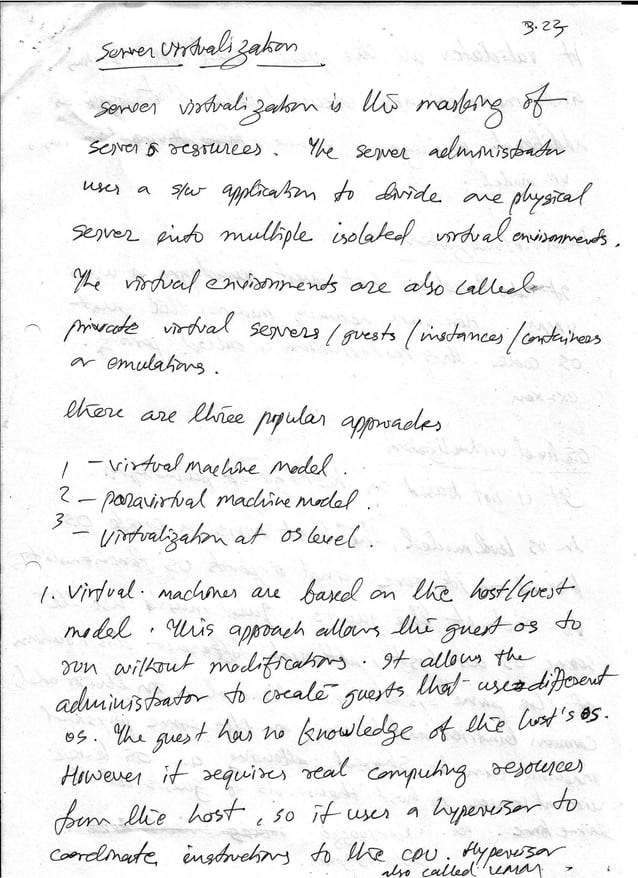 3.23
Server virtualization
server virtualization is the masking of
server's resources. The server administrator
uses a s/w application to divide one physical
server into multiple isolated virtual environments.
The virtual environments are also called
private virtual servers/guests/instances/containers
or emulations.
there are three popular approaches
1 - virtual machine model.
2 - paravirtual machine model.
3 - virtualization at os level.
1. virtual. machines are based on the host/Guest
model. This approach allows the guest os to
run without modifications. It allows the
administrator to create guests that use different
os. The guest has no knowledge of the host's os.
However it requires real computing resources
from the host, so it uses a hypervisor to
coordinate instructions to the CPU. Hypervisor
also called